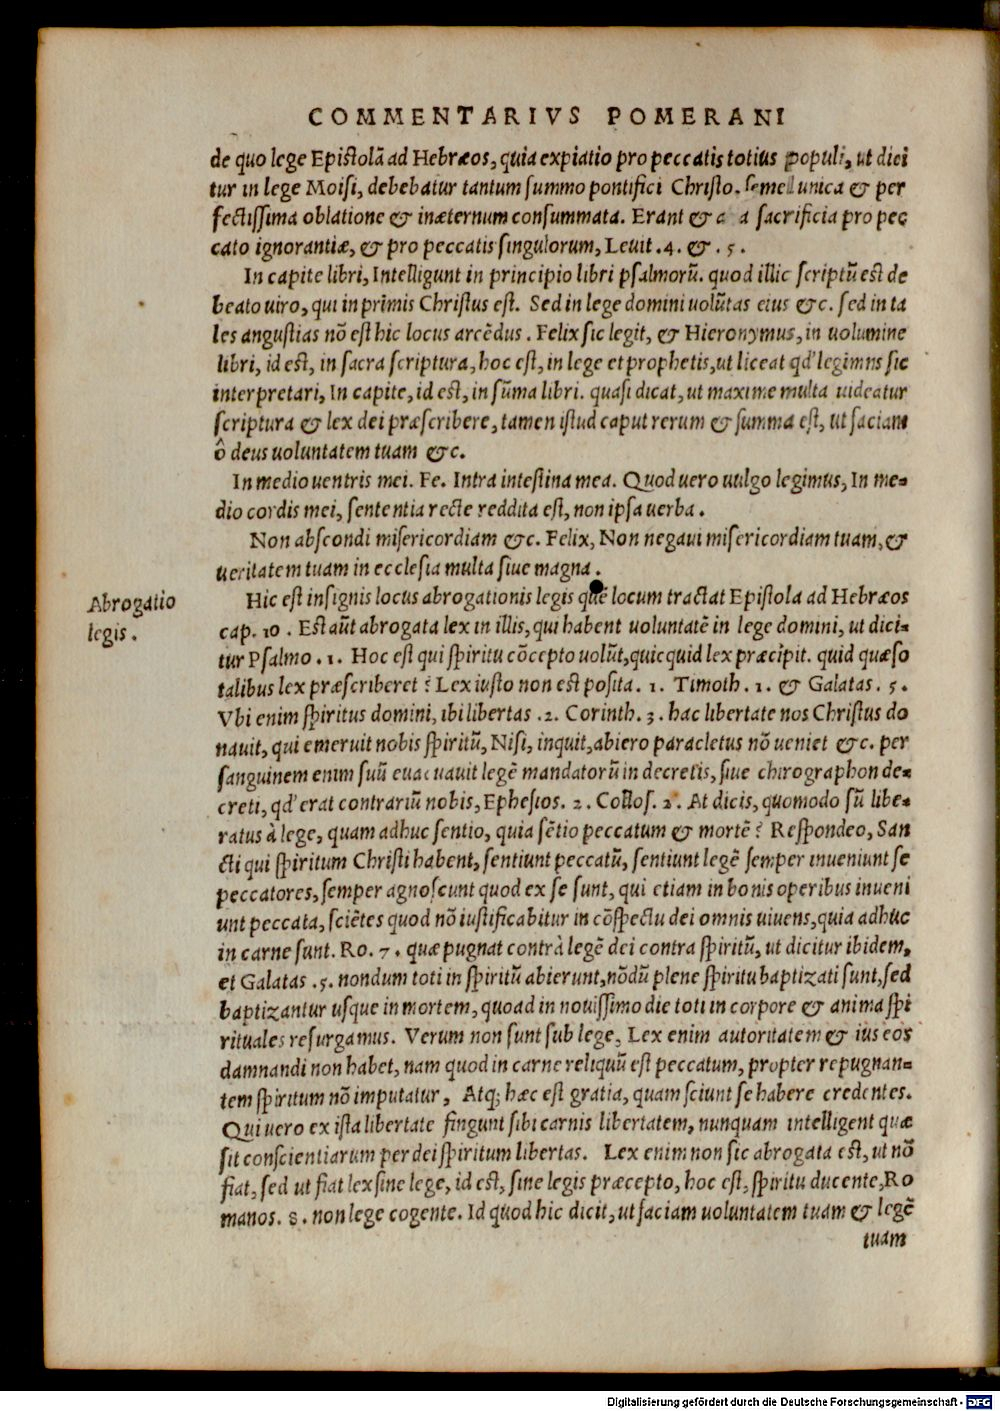 COMMENTARIVS POMERANI
de quo lege Epistolã ad Hebræos, quia expiatio pro peccatis totius populi, ut dici
tur in lege Moisi, debebatur tantum summo pontifici Christo. semel unica & per
fectissima oblatione & inæternum consummata. Erant & a a sacrificia pro pec
cato ignorantiæ, & pro peccatis singulorum, Leuit .4. & .5.
In capite libri, Intelligunt in principio libri psalmorũ. quod illic scriptũ est de
beato uiro, qui in primis Christus est. Sed in lege domini uolũtas eius &c. sed in ta
les angustias nõ est hic locus arcẽdus. Felix sic legit, & Hieronymus, in uolumine
libri, id est, in sacra scriptura, hoc est, in lege et prophetis, ut liceat qd' legimns sic
interpretari, In capite, id est, in sũma libri. quasi dicat, ut maxime multa uideatur
scriptura & lex dei præscribere, tamen istud caput rerum & summa est, ut faciam
ô deus uoluntatem tuam &c.
In medio uentris mei. Fe. Intra intestina mea. Quod uero uulgo legimus, In me=
dio cordis mei, sententia recte reddita est, non ipsa uerba.
Non abscondi misericordiam &c. Felix, Non negaui misericordiam tuam, &
ueritatem tuam in ecclesia multa siue magna.
Abrogatio
legis.
Hic est insignis locus abrogationis legis quẽ locum tractat Epistola ad Hebræos
cap. 10. Est aũt abrogata lex in illis, qui habent uoluntatẽ in lege domini, ut dici=
tur Psalmo .1. Hoc est qui spiritu cõcepto uolũt, quicquid lex præcipit. quid quæso
talibus lex præscriberet? Lex iusto non est posita. 1. Timoth. 1. & Galatas. 5.
Vbi enim spiritus domini, ibi libertas .2. Corinth. 3. hac libertate nos Christus do
nauit, qui emeruit nobis spiritũ, Nisi, inquit, abiero paracletus nõ ueniet &c. per
sanguinem enim suũ euacuauit legẽ mandatorũ in decretis, siue chirographon de=
creti, qd' erat contrariũ nobis, Ephesios. 2. Collos. 2. At dicis, quomodo sũ libe=
ratus à lege, quam adhuc sentio, quia sẽtio peccatum & mortẽ? Respondeo, San
cti qui spiritum Christi habent, sentiunt peccatũ, sentiunt legẽ semper inueniunt se
peccatores, semper agnoscunt quod ex se sunt, qui etiam in bonis operibus inueni
unt peccata, sciẽtes quod nõ iustificabitur in cõspectu dei omnis uiuens, quia adhuc
in carne sunt. Ro. 7. quæ pugnat contrà legẽ dei contra spiritũ, ut dicitur ibidem,
et Galatas .5. nondum toti in spiritũ abierunt, nõdũ plene spiritu baptizati sunt, sed
baptizantur usque in mortem, quoad in nouissimo die toti in corpore & anima spi
rituales resurgamus. Verum non sunt sub lege, Lex enim autoritatem & ius eos
damnandi non habet, nam quod in carne reliquũ est peccatum, propter repugnan=
tem spiritum nõ imputatur, Atq; hæc est gratia, quam sciunt se habere credentes.
Qui uero ex ista libertate fingunt sibi carnis libertatem, nunquam intelligent quæ
sit conscientiarum per dei spiritum libertas. Lex enim non sic abrogata est, ut nõ
fiat, sed ut fiat lex sine lege, id est, sine legis præcepto, hoc est, spiritu ducente, Ro
manos. 8. non lege cogente. Id quod hic dicit, ut faciam uoluntatem tuam & legẽ
tuam
Digitalisierung gefördert durch die Deutsche Forschungsgemeinschaft - DFG